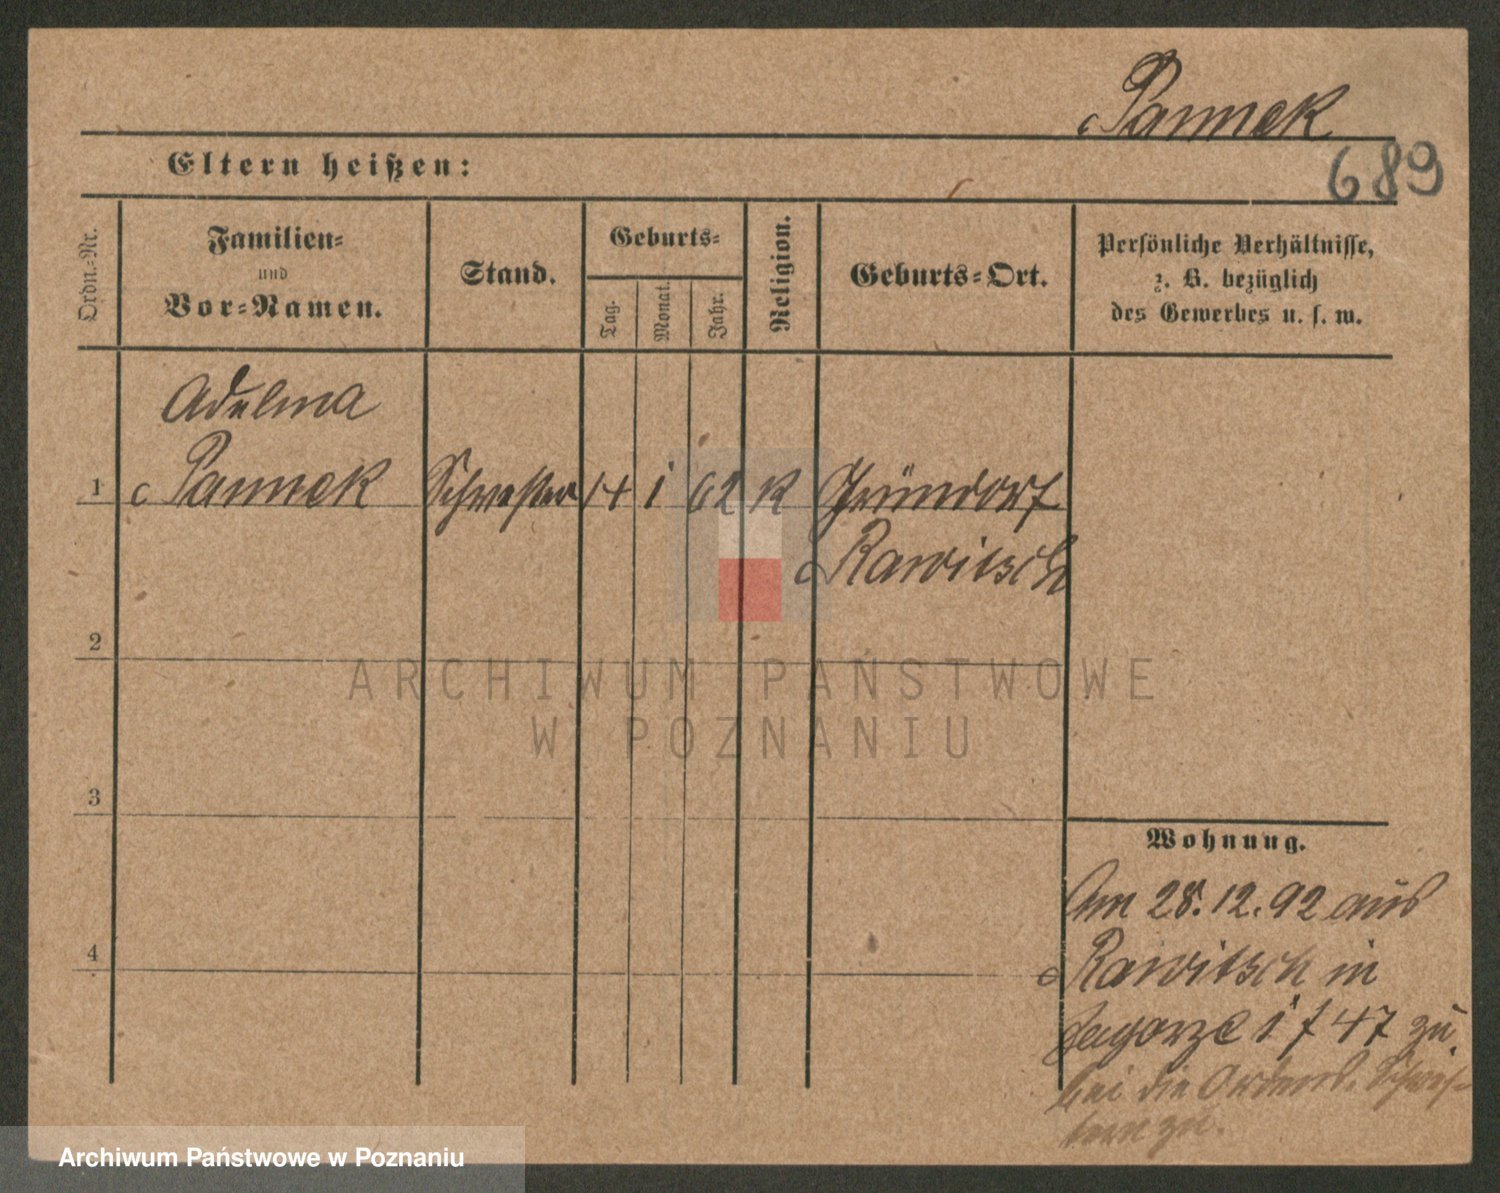 Pannek
689
Eltern heißen:
Ordn.-Nr.
Familien-
und
Vor-Namen.
Stand.
Geburts-
Tag.
Monat.
Jahr.
Religion.
Geburts-Ort.
Persönliche Verhältnisse,
z. B. bezüglich
des Gewerbes u. s. w.
Adelma
1 Pannek Schwester 14 1 62 K Gründorf
Rawitsch
2
3
4
Wohnung.
Am 28.12.92 aus
Rawitsch in
Zagorze 1 f 47 zu.
bei die Ordens. Schwes-
tern zu.
ARCHIWUM PAŃSTWOWE
W POZNANIU
Archiwum Państwowe w Poznaniu